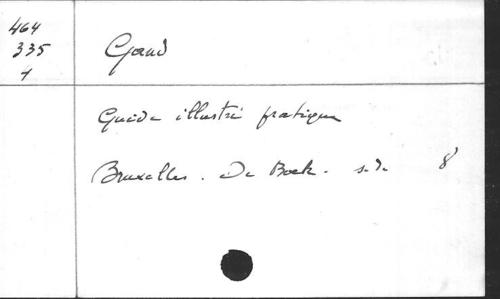 464
335
1
Gand
Guide illustré pratique
Bruxelles. De Boek. s.d. 8°